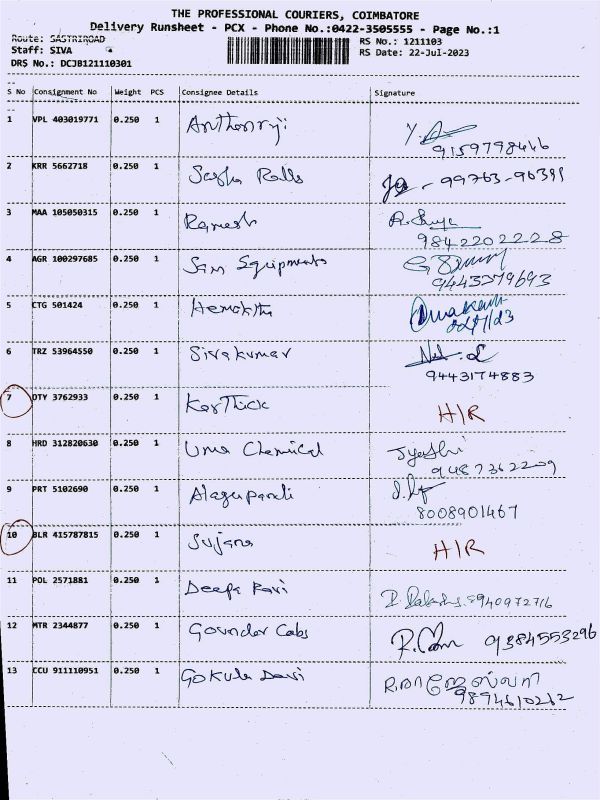 THE PROFESSIONAL COURIERS, COIMBATORE
Delivery Runsheet - PCX - Phone No.:0422-3505555 - Page No.:1
Route: SASTRIROAD
RS No.: 1211103
Staff: SIVA
RS Date: 22-Jul-2023
DRS No.: DCJB121110301
S No Consignment No Weight PCS Consignee Details Signature
1 VPL 403019771 0.250 1 Anthonyji
9159798446
2 KRR 5662718 0.250 1 Rolls - 99763-96391
3 MAA 105050315 0.250 1 Ramesh
9842202228
4 AGR 100297685 0.250 1 Sim Equipments
9443379693
5 CTG 501424 0.250 1
6 TRZ 53964550 0.250 1 Sivakumar
9443174883
7 DTY 3762933 0.250 1 Karthick H/R
8 HRD 312820630 0.250 1 Uma Chemical Jyothi
9487362209
9 PRT 5102690 0.250 1 Alagupandi
8008901467
10 BLR 415787815 0.250 1 Sujana H/R
11 POL 2571881 0.250 1 Deepa Ravi
8940972716
12 MTR 2344877 0.250 1 Govindar Cabs 9384553296
13 CCU 911110951 0.250 1 Gokula Devi R.ராஜேஸ்வரி
9894610262